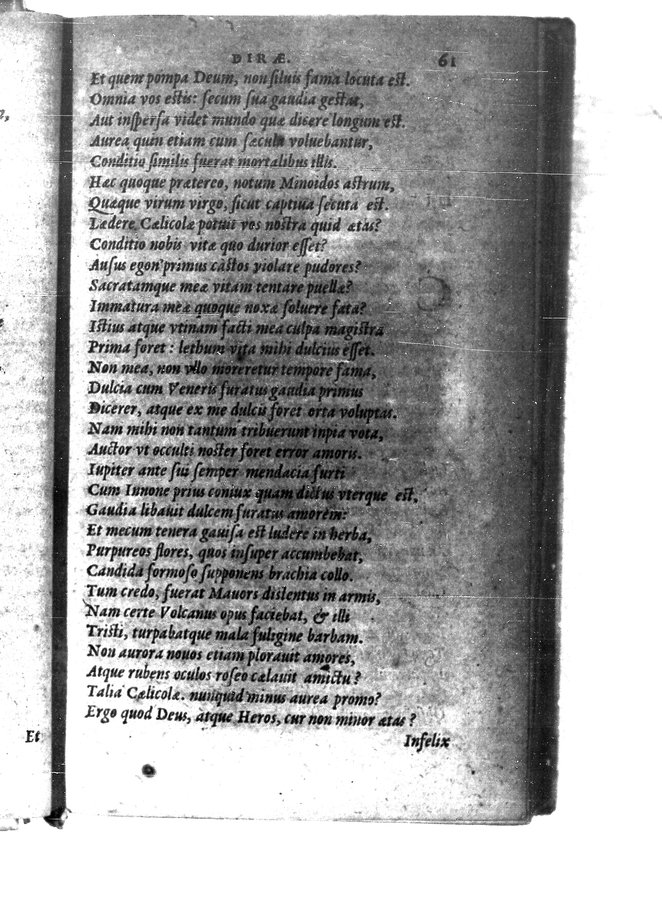 DIRÆ. 61
Et quem pompa Deum, non siluis fama locuta est.
Omnia vos estis: secum sua gaudia gestat,
Aut inspersa videt mundo quæ dicere longum est.
Aurea quin etiam cum sæcula voluebantur,
Conditio similis fuerat mortalibus illis.
Hæc quoque prætereo, notum Minoidos astrum,
Quæque virum virgo, sicut captiua secuta est.
Lædere Cælicolæ potuit vos nostra quid ætas?
Conditio nobis vitæ quo durior esset?
Ausus egon' primus castos violare pudores?
Sacratamque meæ vitam tentare puellæ?
Immatura meæ quoque noxæ soluere fata?
Istius atque vtinam facti mea culpa magistra
Prima foret: lethum vita mihi dulcius esset.
Non mea, non vllo moreretur tempore fama,
Dulcia cum Veneris furatus gaudia primus
Dicerer, atque ex me dulcis foret orta voluptas.
Nam mihi non tantum tribuerunt inpia vota,
Auctor vt occulti noster foret error amoris.
Iupiter ante sui semper mendacia furti
Cum Iunone prius coniux quam dictus vterque est,
Gaudia libauit dulcem furatus amorem:
Et mecum tenera gauisa est ludere in herba,
Purpureos flores, quos insuper accumbebat,
Candida formoso supponens brachia collo.
Tum credo, fuerat Mauors distentus in armis,
Nam certe Volcanus opus faciebat, & illi
Tristi, turpabatque mala fuligine barbam.
Non aurora nouos etiam plorauit amores,
Atque rubens oculos roseo cælauit amictu?
Talia Cælicolæ. nunquid minus aurea promo?
Ergo quod Deus, atque Heros, cur non minor ætas?
Infelix
Et